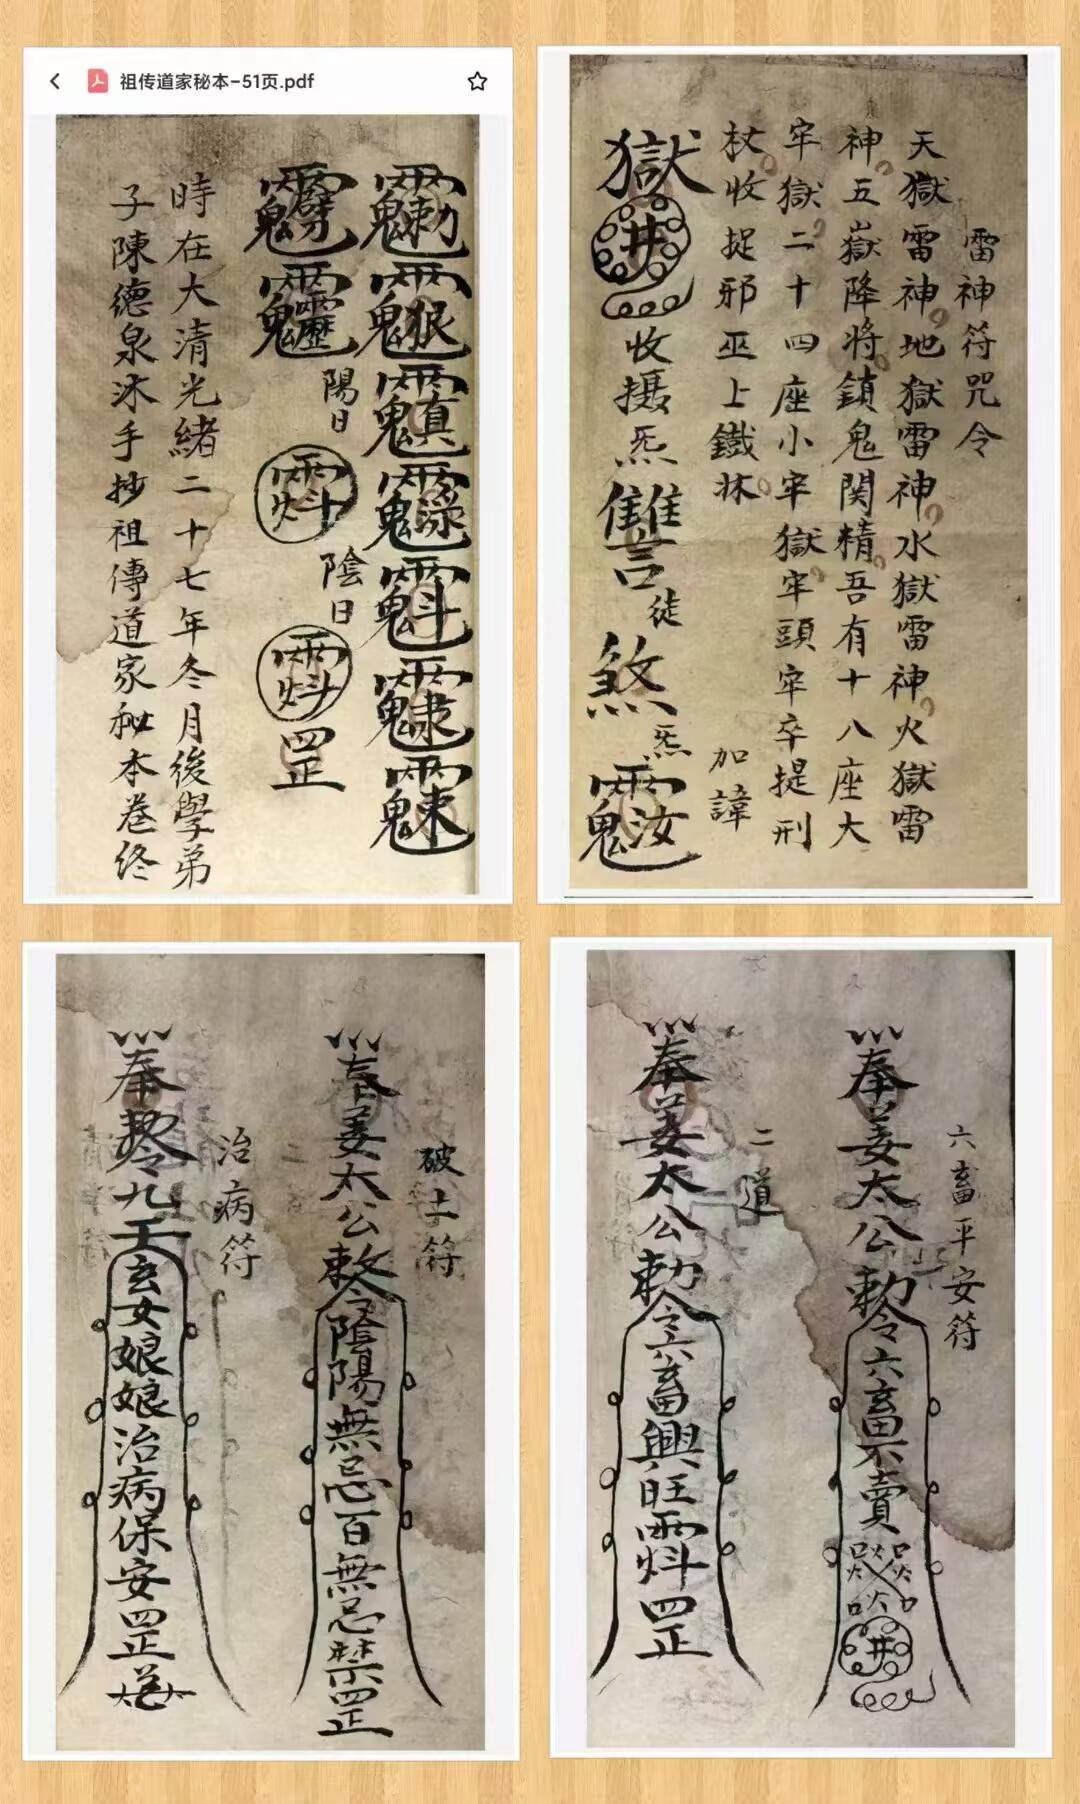 祖传道家秘本-51页.pdf
陽日
陰日
罡
時在大清光緒二十七年冬月後學弟
子陳德泉沐手抄祖傳道家秘本卷终
雷神符咒令
天獄雷神地獄雷神水獄雷神火獄雷
神五嶽降将鎖鬼関精吾有十八座大
牢獄二十四座小牢獄牢頭牢卒提刑
杖收捉邪巫上鐵床
加諱
獄井收摄炁讐徒煞炁
破土符
奉姜太公敕令陰陽無忌百無忌禁罡
治病符
奉敕令九天玄女娘娘治病保安罡
六畜平安符
奉姜太公勅令六畜不賣井
二道
奉姜太公勅令六畜興旺罡